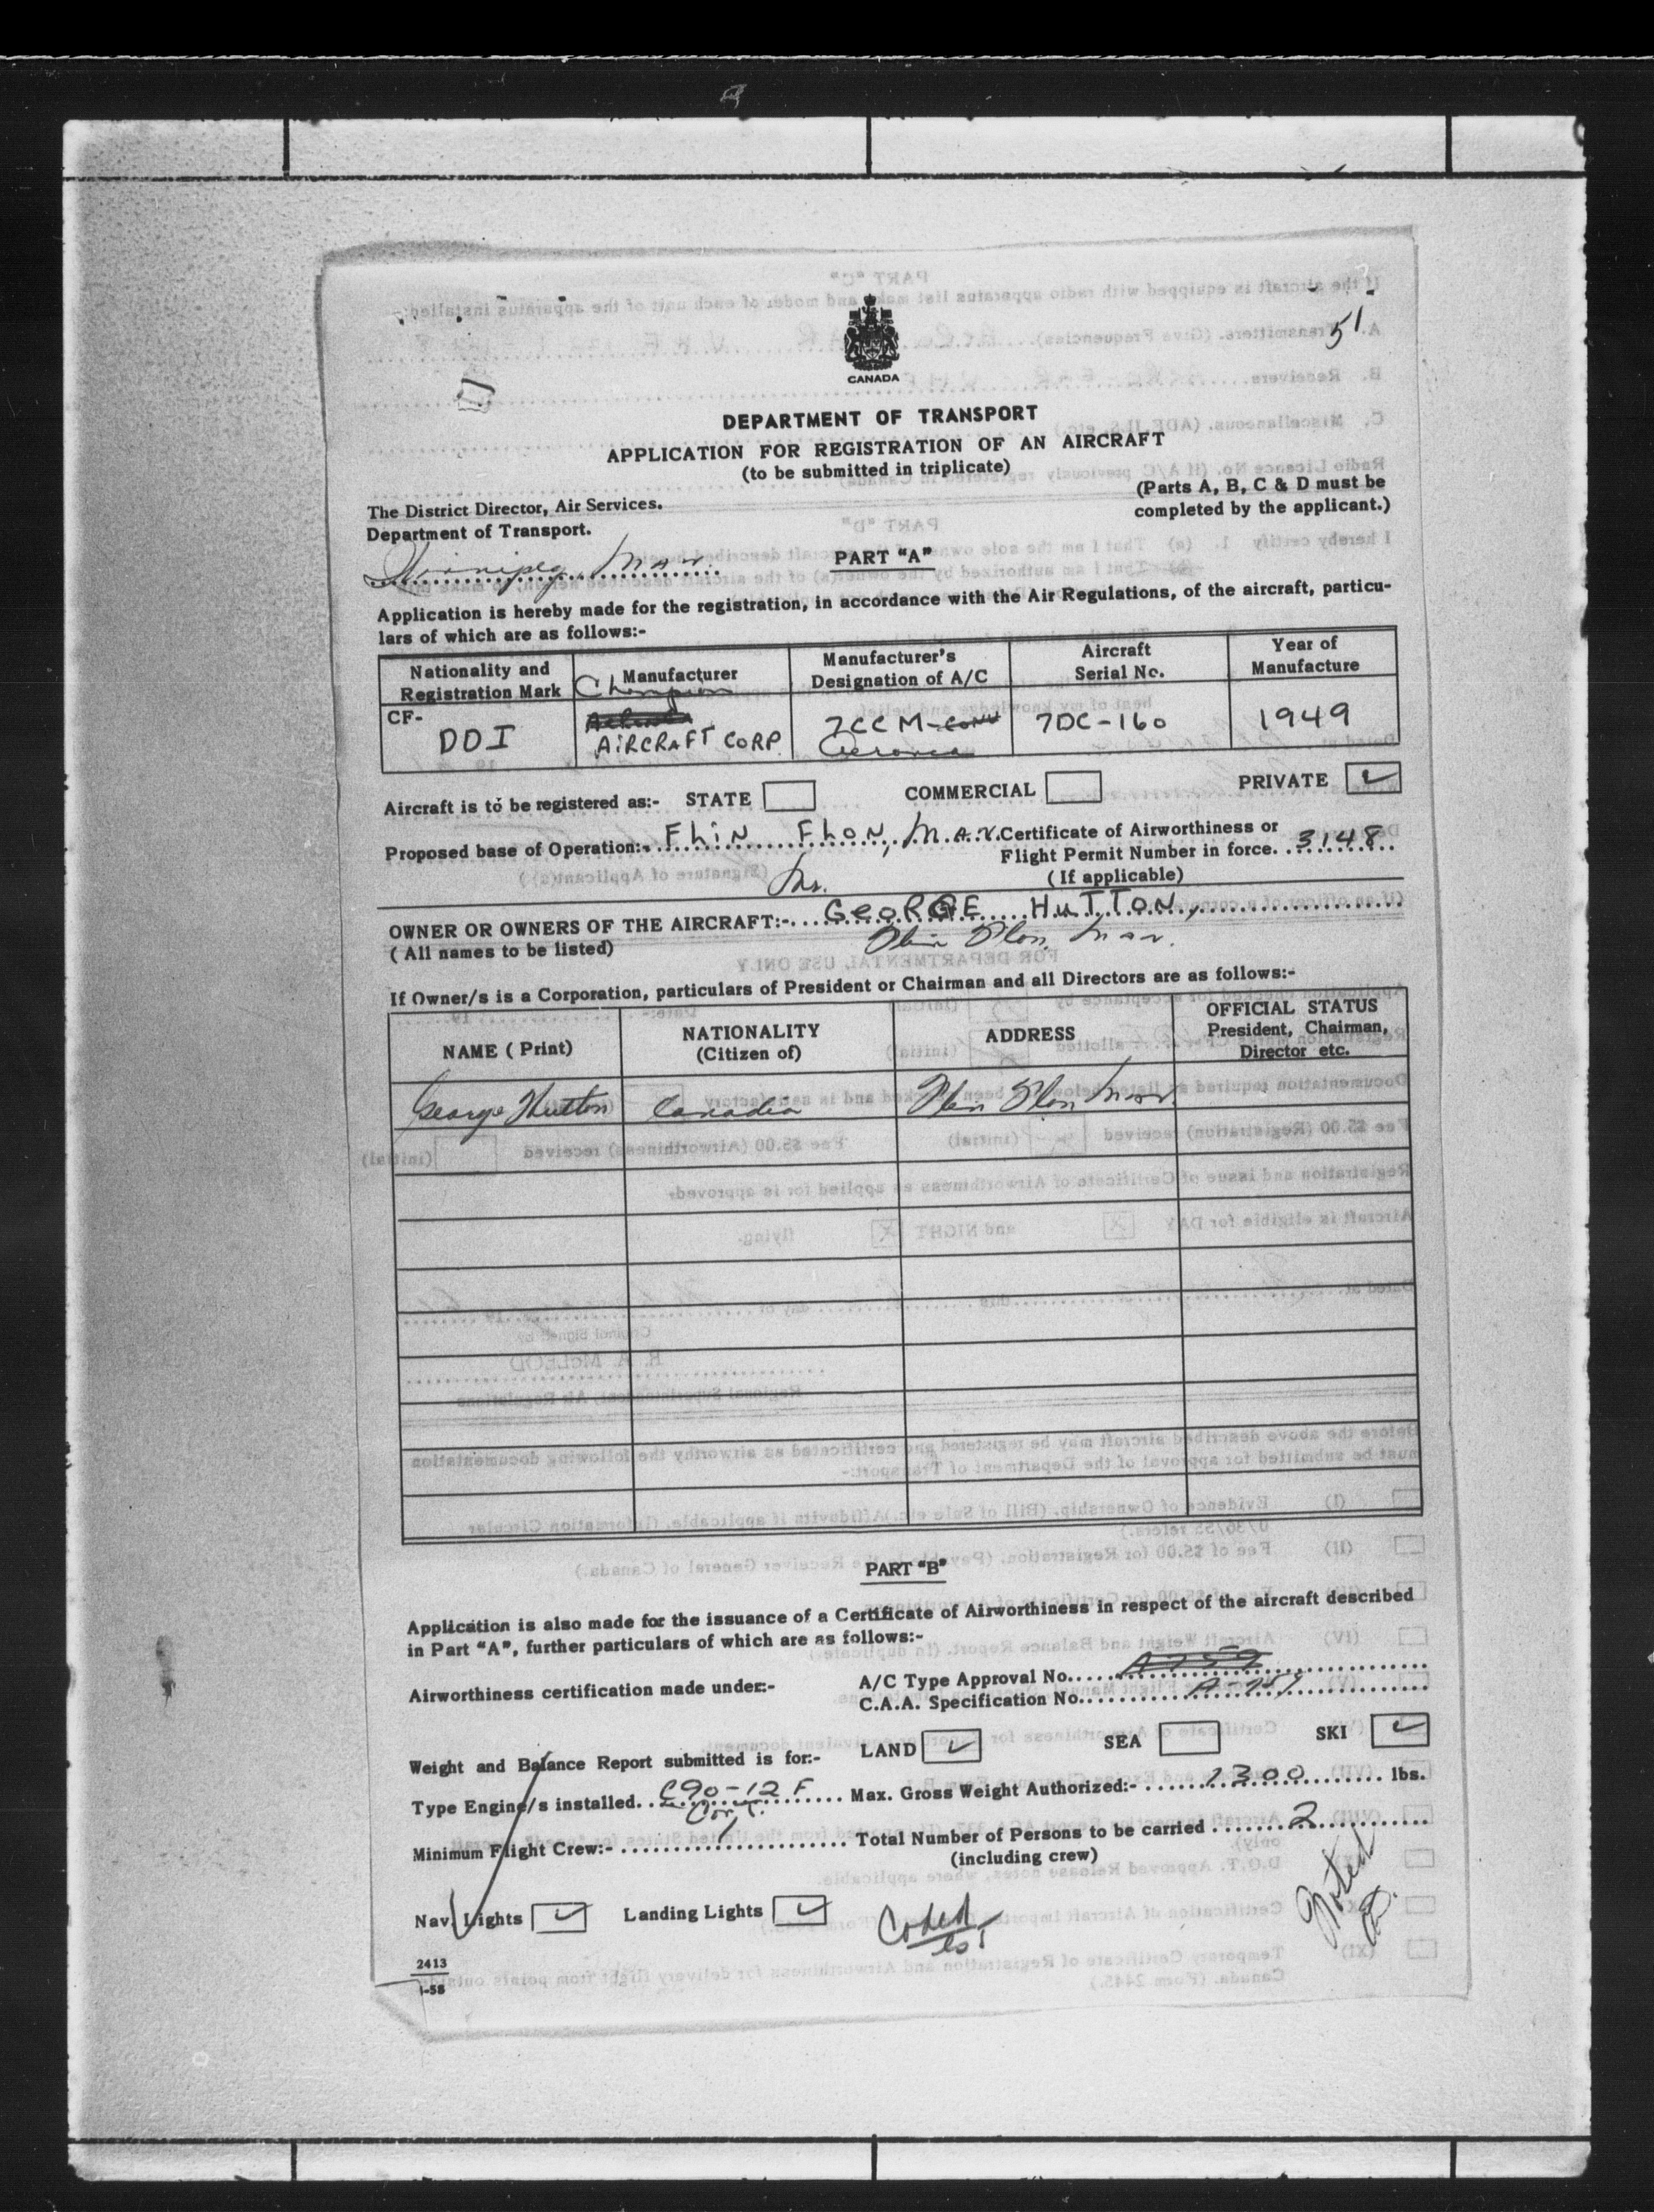 51
CANADA
DEPARTMENT OF TRANSPORT
APPLICATION FOR REGISTRATION OF AN AIRCRAFT
(to be submitted in triplicate)
(Parts A, B, C & D must be
completed by the applicant.)
The District Director, Air Services.
Department of Transport.
Winnipeg, Man.
PART "A"
Application is hereby made for the registration, in accordance with the Air Regulations, of the aircraft, particu-
lars of which are as follows:-
Nationality and Registration Mark
Manufacturer
Manufacturer's Designation of A/C
Aircraft Serial No.
Year of Manufacture
CF- DDI
Champion
AIRCRAFT CORP.
7CCM-CONV
Aeronca
7DC-160
1949
Aircraft is to be registered as:- STATE COMMERCIAL PRIVATE ✓
Proposed base of Operation:- FLiN FLON, MAN. Certificate of Airworthiness or
Flight Permit Number in force. 3148
(If applicable)
Mr.
OWNER OR OWNERS OF THE AIRCRAFT:- GEORGE HUTTON,
(All names to be listed) Flin Flon, Man.
If Owner/s is a Corporation, particulars of President or Chairman and all Directors are as follows:-
NAME (Print)
NATIONALITY (Citizen of)
ADDRESS
OFFICIAL STATUS President, Chairman, Director etc.
George Hutton Canadia Flin Flon Man
PART "B"
Application is also made for the issuance of a Certificate of Airworthiness in respect of the aircraft described
in Part "A", further particulars of which are as follows:-
Airworthiness certification made under:- A/C Type Approval No. A759
C.A.A. Specification No. A-759
Weight and Balance Report submitted is for:- LAND ✓ SEA SKI ✓
Type Engine/s installed. C90-12F Max. Gross Weight Authorized:- 1300 lbs.
Cont.
Minimum Flight Crew:- 1 Total Number of Persons to be carried 2
(including crew)
Nav. Lights ✓ Landing Lights ✓
Coded
Noted
2413
1-58